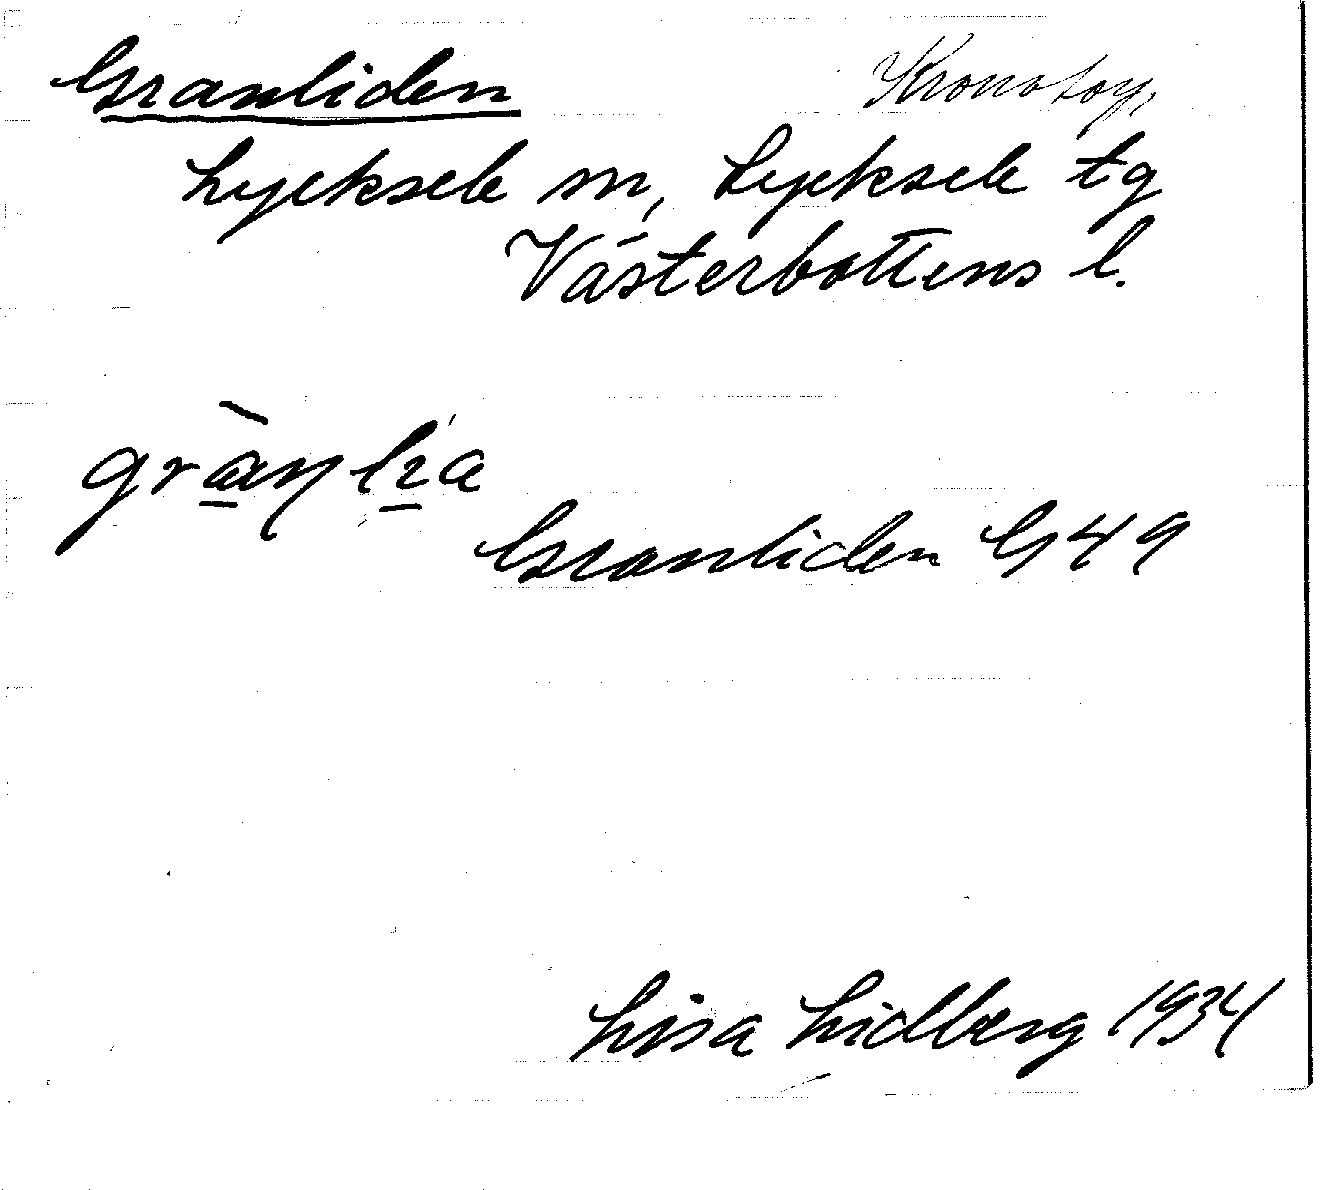 Granliden Kronotorp
Lycksele sn, Lycksele tg
Västerbottens l.
Granliden G 49
Lisa Lidberg 1934